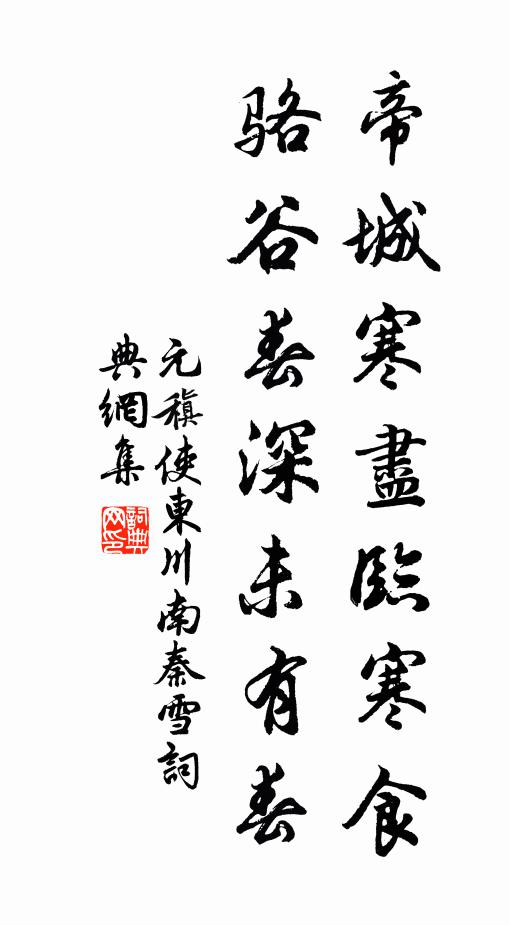 帝城寒盡臨寒食
骆谷春深未有春
元稹使東川南秦雪詞
典網集
詞典网印